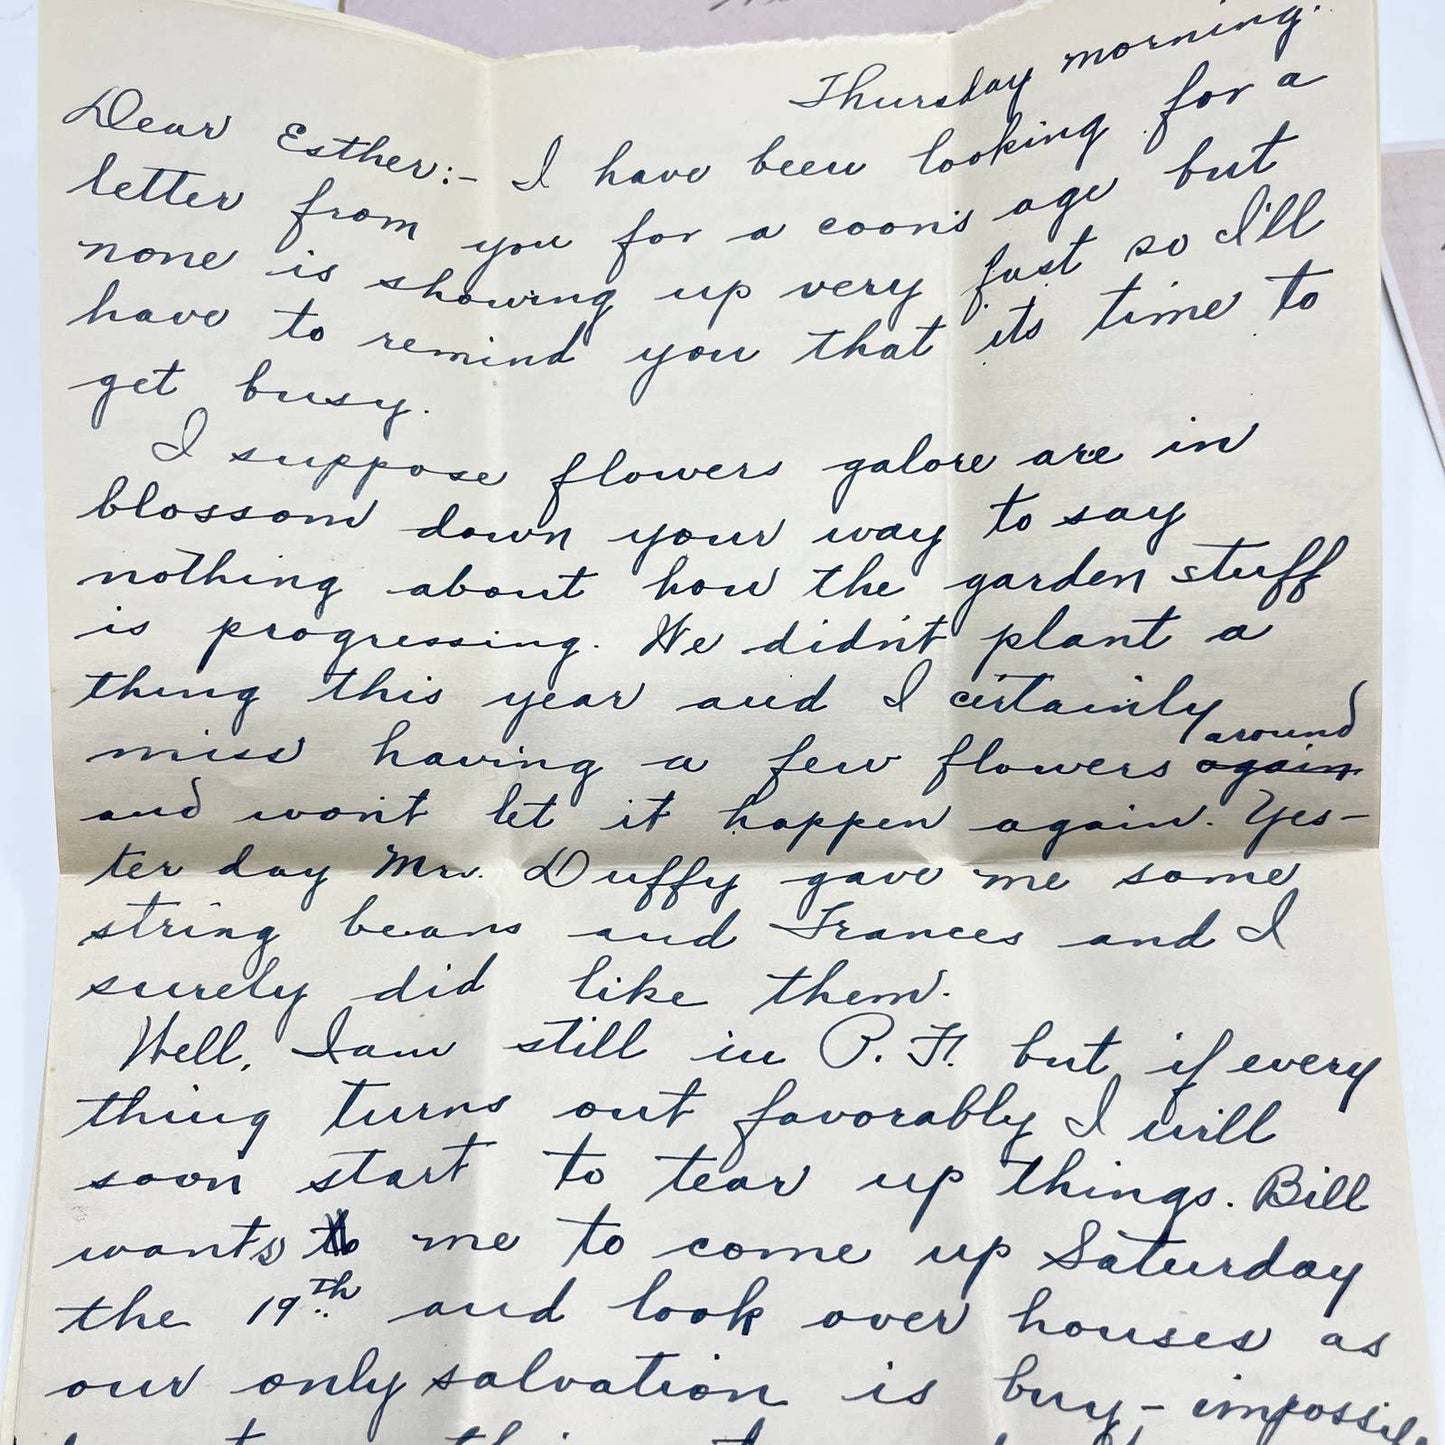 Thursday morning.
Dear Esther:- I have been looking for a
letter from you for a coon's age but
none is showing up very fast so I'll
have to remind you that its time to
get busy.
I suppose flowers galore are in
blossom down your way to say
nothing about how the garden stuff
is progressing. We didn't plant a
thing this year and I certainly
miss having a few flowers around again
and won't let it happen again. Yes-
ter day Mr. Duffy gave me some
string beans and Frances and I
surely did like them.
Well, I am still in P. F. but if every
thing turns out favorably I will
soon start to tear up things. Bill
wants to me to come up Saturday
the 19th and look over houses as
our only salvation is buy-